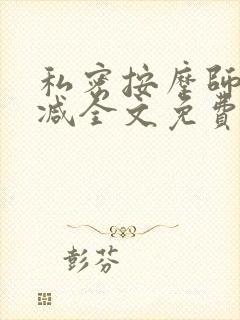 私密按摩師
减全文免費
彭芬